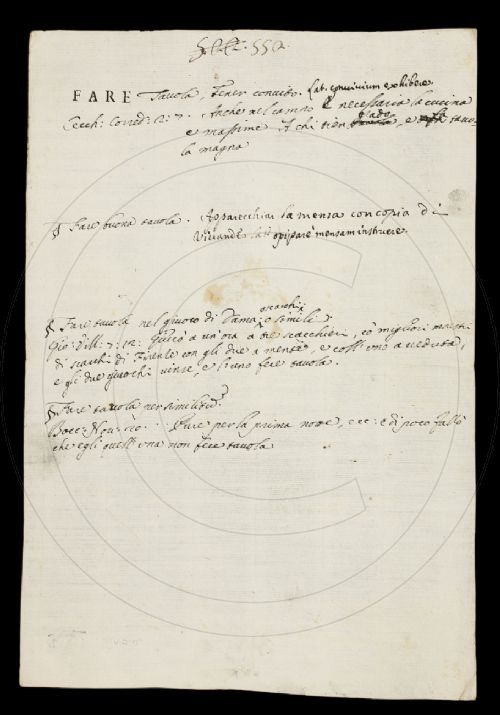 550.
FARE Tavola, tener convito. Lat. convivium exhibere.
Cecch: Corred: 2: 7. Anche nel campo è necessaria la cucina
e massime A chi tien grado, e fa tavo-
la magna
§ Fare buona tavola. Apparecchiar la mensa con copia di
Vivande lat: opiparè mensam instruere.
§ Fare tavola nel giuoco di Dama, o scacchi, o simili
Gio: Vill: 7: 12: Giucò a un'ora a tre scacchieri, cò migliori mastri
di scacchi di Firenze con gli due a mente, e coll'uno a veduta,
e gli due giuochi vinse, e l'uno fece tavola.
§ Fare tavola per similitud:
Bocc: Nov: 50. Pure per la prima notte, ecc: è di poco fallò
che egli quell'una non fece tavola